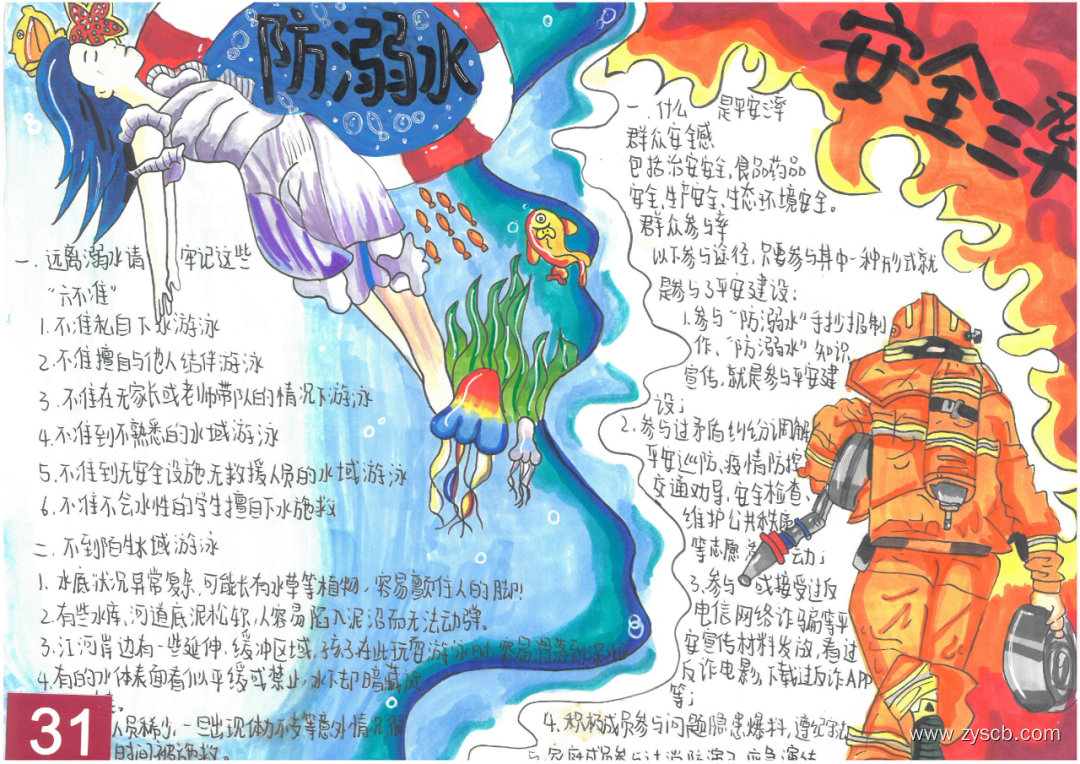 防溺水
一.远离溺水请牢记这些
“六不准”
1.不准私自下水游泳
2.不准擅自与他人结伴游泳
3.不准在无家长或老师带队的情况下游泳
4.不准到不熟悉的水域游泳
5.不准到无安全设施、无救援人员的水域游泳
6.不准不会水性的学生擅自下水施救
二.不到陌生水域游泳
1.水底状况异常复杂,可能长有水草等植物,容易颤住人的脚!
2.有些水库、河道底泥松软,人容易陷入泥沼而无法动弹。
3.江河岸边有一些延伸、缓冲区域,孩子在此玩耍游泳时,容易滑落到深水
4.有的水体表面看似平缓或禁止,水下却暗藏
人员稀少,一旦出现体力不支等意外情况很
时间被施救。
31
安全三率
一.什么 是平安三率
群众安全感
包括治安安全,食品药品
安全、生产安全、生态环境安全。
群众参与率
以下参与途径,只要参与其中一种形式就
是参与了平安建设:
1.参与“防溺水”手抄报制
作、“防溺水”知识
宣传,就是参与平安建
设;
2.参与过矛盾纠纷调解
平安巡防、疫情防控
交通劝导、安全检查、
维护公共秩序
等志愿 动;
3.参与 或接受过反
电信网络诈骗等平
安宣传材料发放,看过
反诈电影,下载过反诈APP
等;
4.积极成员参与问题隐患爆料,遵纪守法
与家庭成员参与过消防演习、应急演练
www.zyscb.com